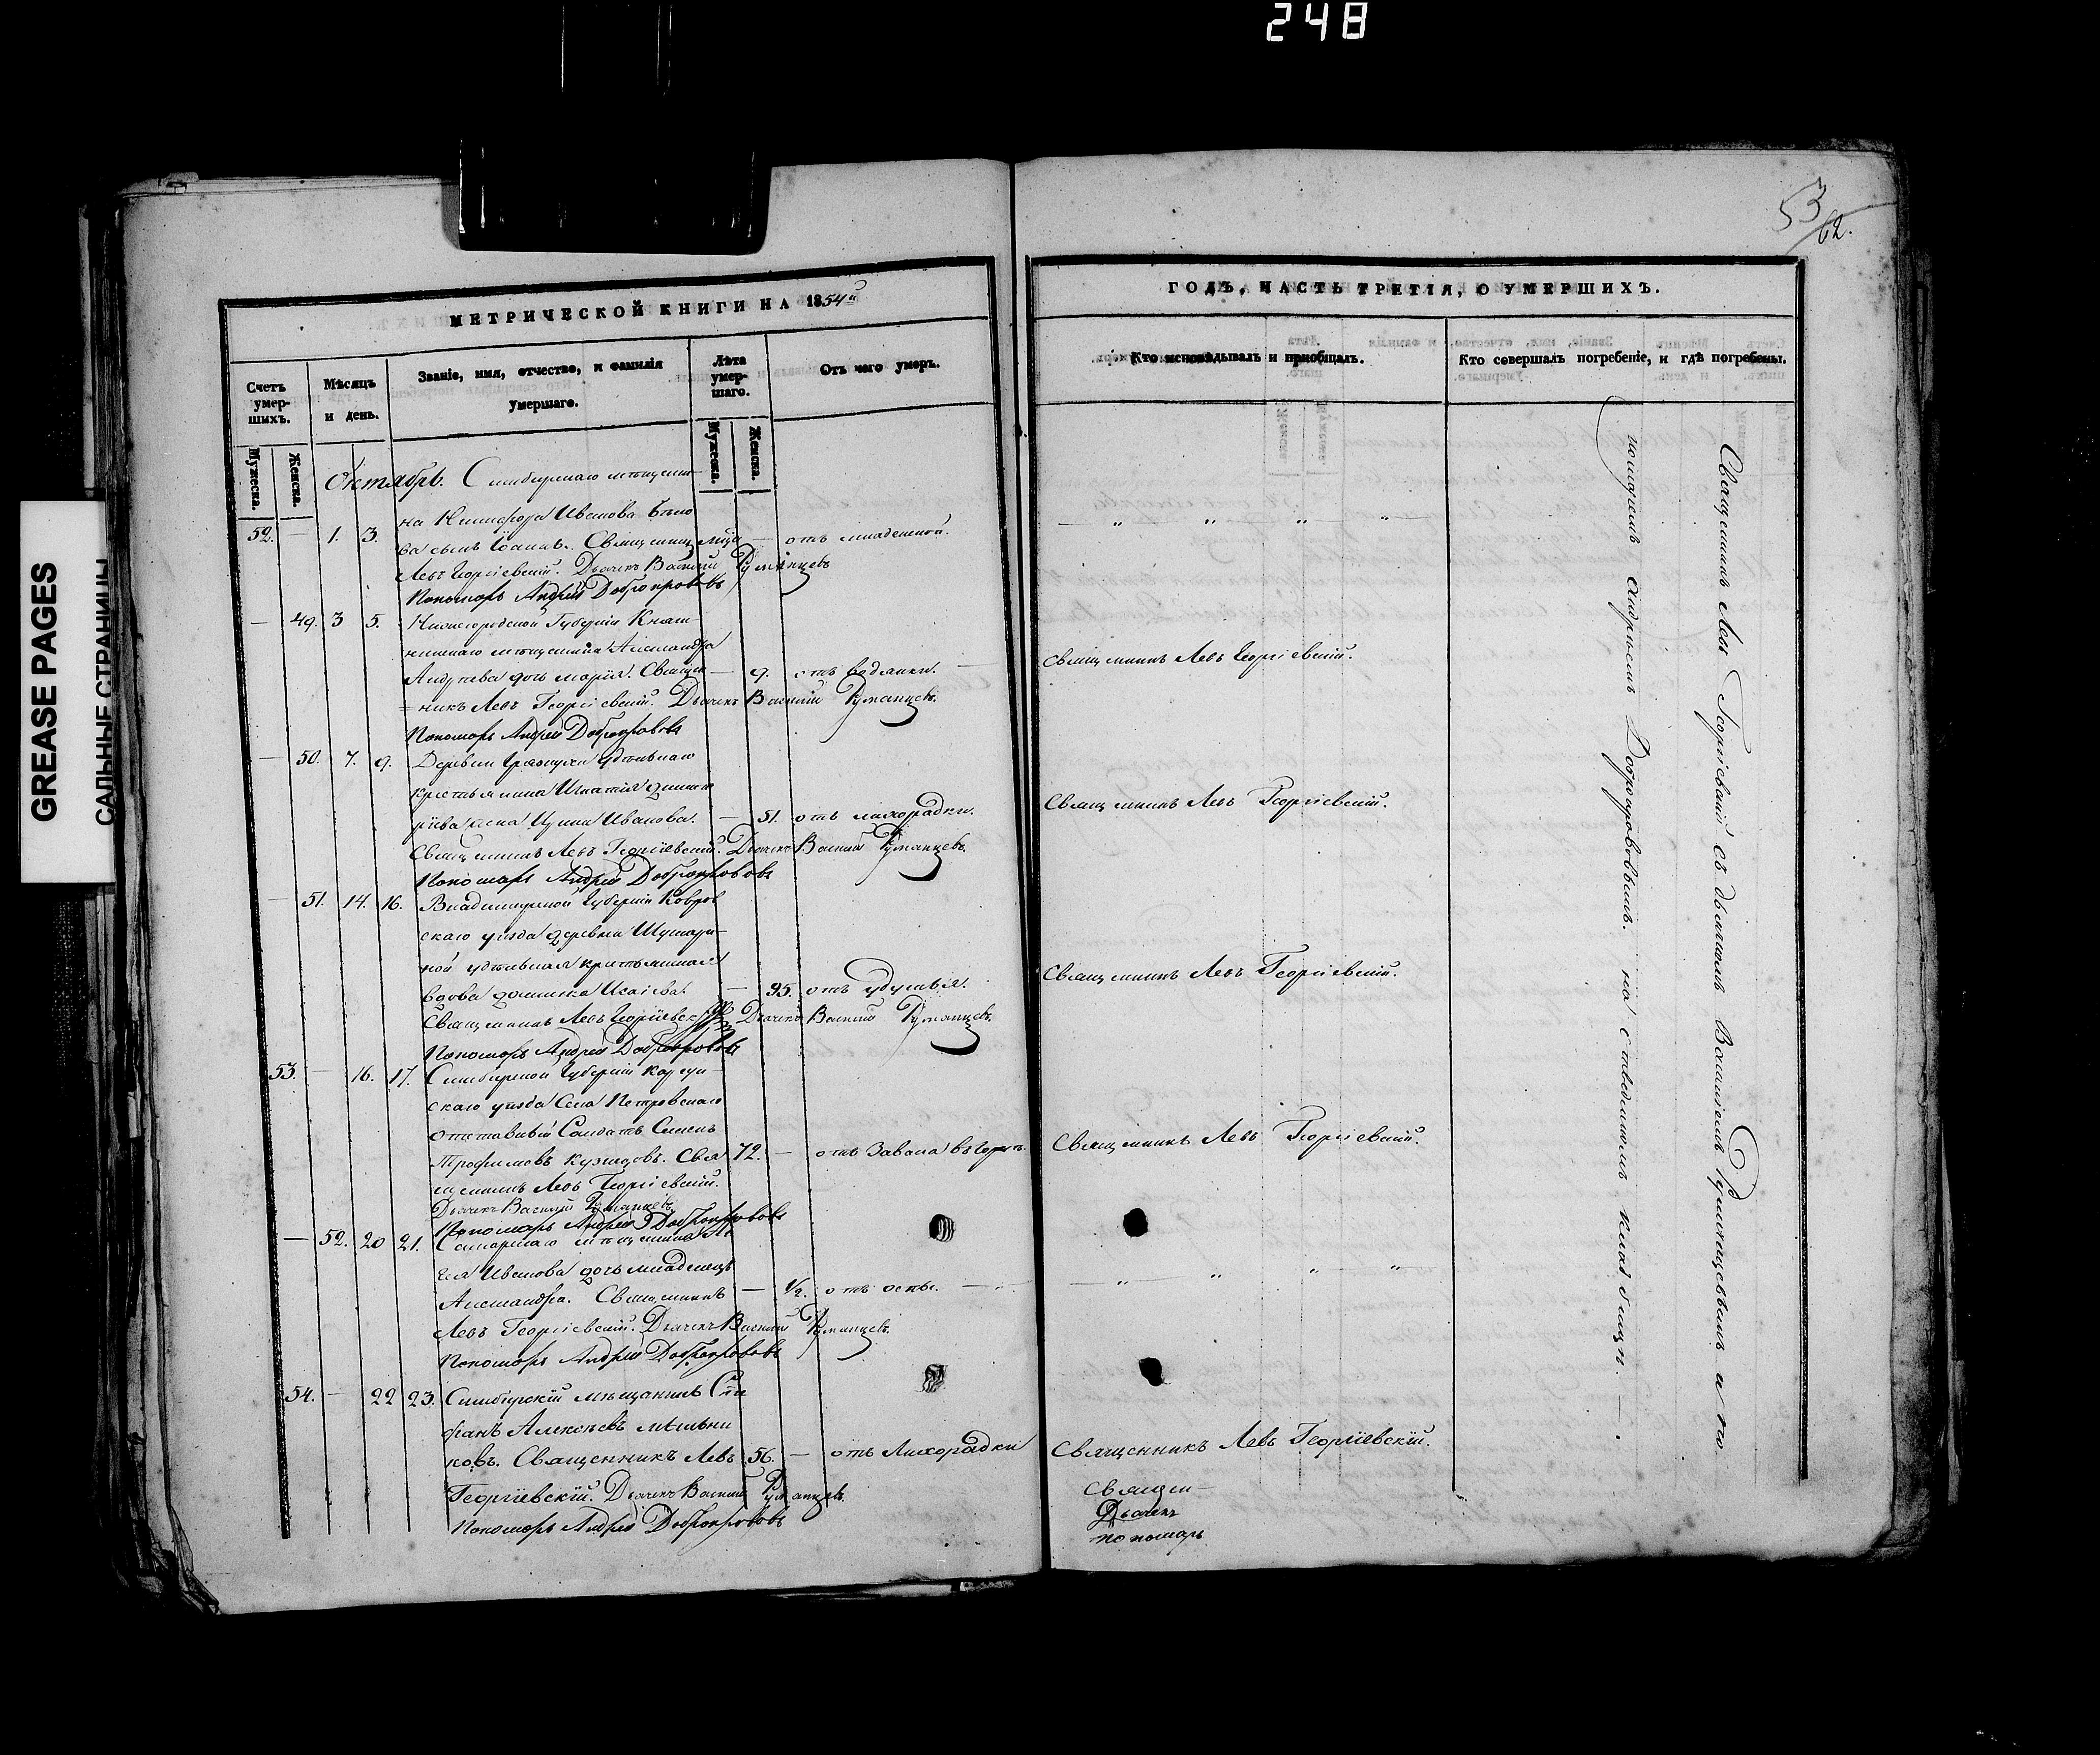 248
GREASE PAGES
САЛЬНЫЕ СТРАНИЦЫ
53/62.
МЕТРИЧЕСКОЙ КНИГИ НА 1854й
Счетъ умершихъ.
Мѣсяцъ и день.
Званіе, имя, отчество, и фамилія умершаго.
Лѣта умершаго.
Отъ чего умеръ.
Мужеска.
Женска.
Мужеска.
Женска.
Октябрь. Симбирскаго мѣщани-
на Никифора Иванова Бѣло
52. — 1. 3. ва сынъ Іоаннъ. Священникъ — отъ младенской.
Левъ Георгіевскій. Дьячекъ Василій Румянцевъ
Пономарь Андрей Доброхровъ
— 49. 3 5. Нижегородской Губерніи Княг-
нинскаго мѣщанина Александра
Андреева дочь Марія. Священ- — 9. отъ водянки. —
=никъ Левъ Георгіевскій. Дьячекъ Василій Румянцевъ.
Пономарь Андрей
— 50. 7. 9. Деревни удѣльнаго
крестьянина Игнатія Дмит
ріева жена Ирина Иванова. — 51. отъ лихорадки.
Священникъ Левъ Георгіевскій. Дьячекъ Василій Румянцевъ.
Пономарь Андрей
— 51. 14. 16. Владимирской Губерніи Ковров
скаго уѣзда деревни
ной удѣльная крестьянская
вдова Исаіева. — 95. отъ удушья.
Священникъ Левъ Георгіевскій Дьячекъ Василій Румянцевъ.
Пономарь Андрей
53. — 16. 17. Симбирской Губерніи Карсун-
скаго уѣзда Села Петровскаго
отставный Солдатъ Семенъ
Трофимовъ Кузнецовъ. Свя 72. — отъ Завала въ горлѣ.
щенникъ Левъ Георгіевскій.
Дьячекъ Василій Румянцевъ.
Пономарь Андрей
— 52. 20 21. Самарскаго мѣщанина
Иванова дочь младенецъ
Александра. Священникъ — 1/2. отъ оспы. —
Левъ Георгіевскій. Дьячекъ Василій Румянцевъ.
Пономарь Андрей
54. — 22 23. Симбирскій мѣщанинъ Сте
фанъ Алексѣевъ Мѣльни
ковъ. Священникъ Левъ 56. — отъ Лихорадки
Георгіевскій. Дьячекъ Василій Румянцевъ.
Пономарь Андрей
ГОДЪ, ЧАСТЬ ТРЕТІЯ, О УМЕРШИХЪ.
Кто исповѣдывалъ и пріобщалъ.
Кто совершалъ погребеніе, и гдѣ погребены.
— „ „ „ „ —
Священникъ Левъ Георгіевскій.
Священникъ Левъ Георгіевскій.
Священникъ Левъ Георгіевскій.
Священникъ Левъ Георгіевскій.
— „ „ „ „ —
Священникъ Левъ Георгіевскій.
Священ-
Дьячекъ
Пономарь
Священникъ Левъ Георгіевскій съ дьячкомъ Василіемъ Румянцевымъ и по-
номаремъ Андреемъ на кладбищѣ. —